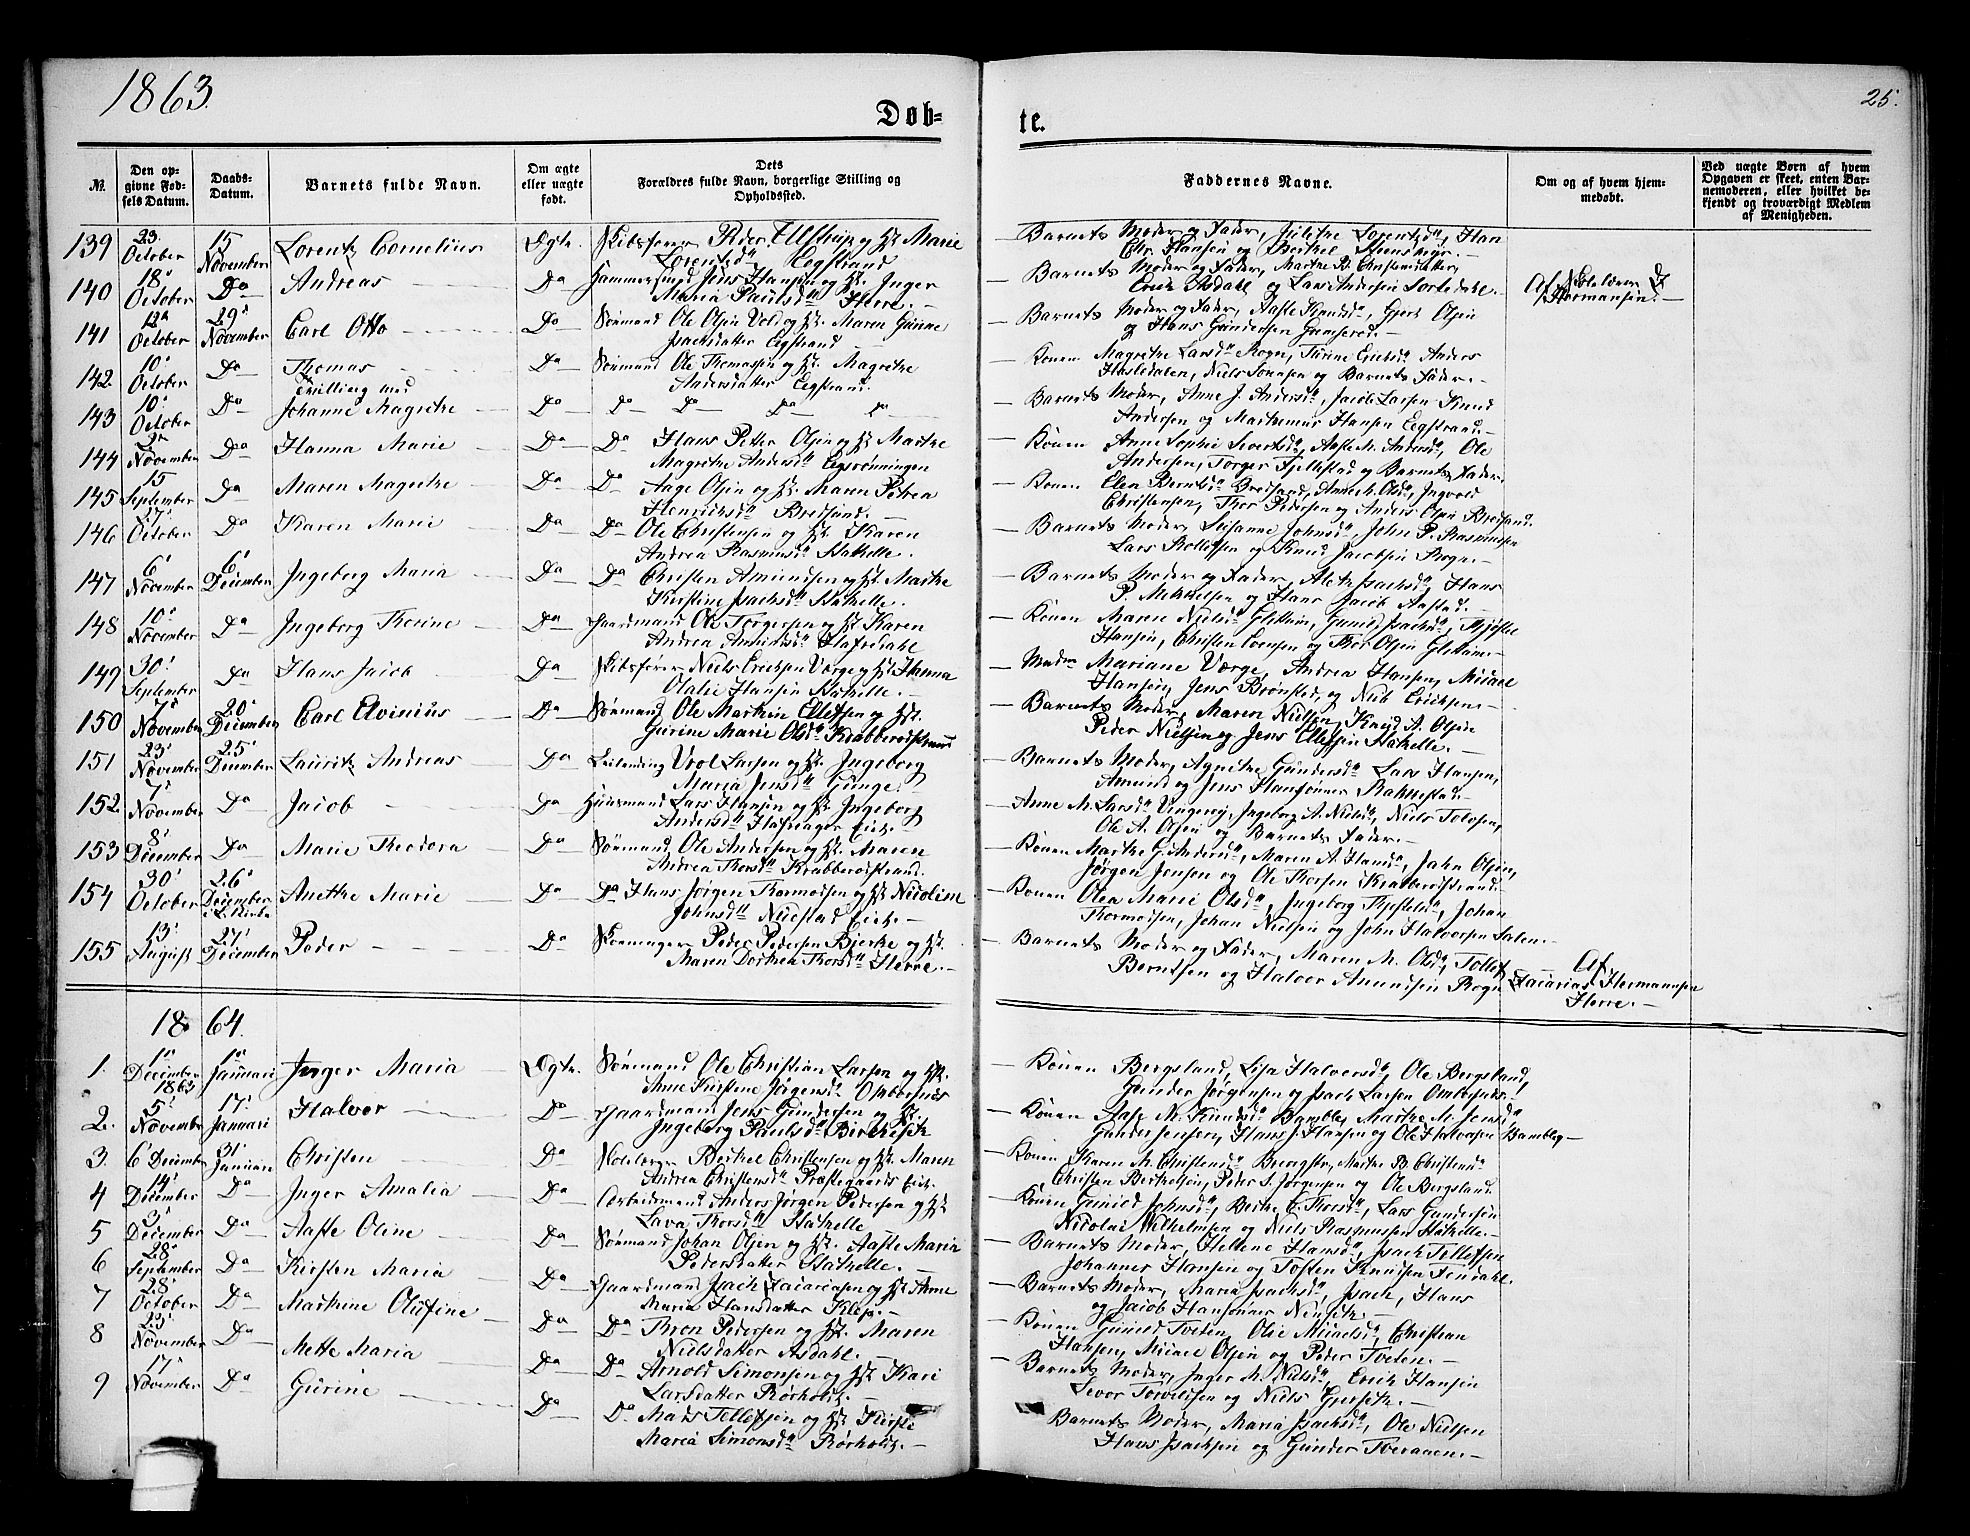 1863.
25.
Døb=
te.
№.
Den op-
givne Fød-
sels Datum.
Daabs-
Datum.
Barnets fulde Navn.
Om ægte
eller uægte
født.
Dets
Forældres fulde Navn, borgerlige Stilling og
Opholdssted.
Faddernes Navne.
Om og af hvem hjem-
medøbt.
Ved uægte Børn af hvem
Opgaven er skeet, enten Bar-
nemoderen, eller hvilket be-
kjendt og troværdigt Medlem
af Menigheden.
139 23 October 15 November Lorentz Cornelius Ægte. Skibsfører Peder Ellstrup og H. Marie
Lorentsd. Eegstrand
Barnets Moder og Fader, Hans
Chr. Hansen og Berthel
140 18 October Da Andreas Da Hammersmed Jens Hansen og H. Inger
Maria Paulsd. Herre.
Barnets Moder og Fader, Marthe B. Christensdatter,
Erick Asdahl og Lars Andersen Sortedahl.
Af Hermansen.
141 12 October 29 November Carl Otto Da Sømand Ole Olsen Vold og H. Maren Gurine
Isachsdatter Eegstrand
Barnets Moder og Fader, Aaste Knudsd., Gjert Olsen
og Hans Gundersen Gumserød.
142. 10 October Da Thomas Da Sømand Ole Thomassen og H. Magrethe
Tvilling med
Andersdatter Eegstrand.
Konen Magrethe Larsd. Rogn, Turine Ericksd. Anders
Hasledalen, Niels Sønsen og Barnets Fader.
143 10 October Da Johanne Magrethe Da Da Da Da Da
Barnets Moder, Anne J. Andersd., Jacob Larsen Knud
Andersen og Marthinius Hansen Eegstrand.
144 2 November Da Hanna Marie Da Da Hans Petter Olsen og H. Marthe
Magrethe Andersd. Eegsrønningen
Konen Anne Sophie Sivertsd., Aaste M. Andersd., Ole
Andersen, Torger Fjellestad og Barnets Fader.
145 15 September Da Maren Magrethe Da Da Aage Olsen og H. Maren Petrea
Henricksd. Bredsund.
Konen Elen Berntsd. Bredsund, Anne M. Olsd., Ingvold
Christensen, Thor Pedersen og Anders Olsen Bredsund.
146 17 October Da Karen Marie Da Da Ole Christensen og H. Karen
Andrea Rasmusd. Stathelle.
Barnets Moder, Susanne Johnsd., John P. Rasmusen
Lars Rollefsen og Knud Jacobsen Rogn.
147 6 November 6 December Ingeborg Maria Da Da Christen Amundsen og H. Marthe
Kirstine Isachsd. Stathelle.
Barnets Moder og Fader, Aleth Isachsd., Hans
P. Mikkelsen og Hans Jacob Aastad.
148 10 November Da Ingeborg Thorine Da Gaardmand Ole Torgersen og H. Karen
Andrea Amundsd. Hafredahl
Konen Maren Nielsd. Glittum, Gunild Isachsd., Thjøstel
Hansen, Christen Svensen og Thor Olsen Glittum.
149 30 September Da Hans Jacob Da Skibsfører Niels Ericksen Værge og H. Hanna
Olalie Hansen Stathelle.
Madm Mariane Værge, Andrea Hansen, Micael
Hansen, Jens Brønsted, og Niels Ericksen.
150 7 November 20 December Carl Elvinius Da Sømand Ole Marthin Ellefsen og H.
Gurine Marie Olsd. Krabberødstrand
Barnets Moder, Maren Nielsen, Knud A. Olsen
Peder Nielsen og Jens Ellefsen Stathelle.
151 23 November 25 December Lauritz Andreas Da Leilending Vrol Larsen og H. Ingeborg
Maria Jensd. Gringe.
Barnets Moder, Agnethe Gundersd. Lars Hansen,
Amund og Jens Hansønner Rakkestad.
152. 7 November Da Jacob Da Huusmand Lars Hansen og H. Ingeborg
Andersd. Hafsager Eie.
Anne M. Larsd. Vingerej, Ingeborg A. Nielsd., Niels Tolofsen,
Ole A. Olsen og Barnets Fader.
153 8 December Da Marie Theodora Da Sømand Ole Andersen og H. Maren
Andrea Thorsd. Krabberødstrand.
Konen Marthe G. Andersd., Maren A. Hansd., John Olsen,
Jørgen Jensen og Ole Thorsen Krabberødstrand.
154 30 October 26 December Anethe Marie Da Da Hans Jørgen Thormodsen og H. Nicoline
Johnsd. Nustad Eie.
Konen Olea Marie Olsd., Ingeborg Thjostelsd., Johan
Thormodsen, Johan Nielsen og John Halvorsen Salen.
155 13 August 27 December Peder Da Peder Pedersen Bjerke og H.
Maren Dorthea Thorsd. Herre.
Barnets Moder og Fader, Maren M. Olsd., Tollef
Berntsen og Halvor Amundsen Rogn
Af
Zacarias Hermansen
Herre.
1864.
1. 1 December 1863 1 Januari Inger Maria Ægte. Sømand Ole Christian Larsen og H.
Anne Kirstine Jørgensd. Ombordsnes
Konen Bergsland, Lisa Halvorsd., Ole Bergsland,
Gunder Jørgensen og Isach Larsen Ombordsnes.
2. 5 November 17 Januari Halvor Da Gaardmand Jens Gundersen og H.
Ingeborg Paulsd. Birkevik
Konen Aaste M. Knudsd. Bamble, Marthe M. Jensd.
Gunder Jensen, Hans J. Hansen og Ole Halvorsen Bamble
3. 6 December 31 Januari Christen Da Berthel Christensen og H. Maren
Andrea Christensd. Præstegaards Eie.
Konen Karen M. Christensd. Marthe B. Christensd.
Christen Berthelsen, Peder S. Jørgensen og Ole Bergsland.
4 14 December Da Inger Amalia Da Arbeidsmand Anders Jørgen Pedersen og H.
Lava Thorsd. Stathelle
Konen Gunild Johnsd., Berthe E. Thorsd., Lars Gundersen
Nicolai Wilhelmsen og Niels Rasmussen Stathelle.
5 3 December Da Aaste Oline Da Sømand Johan Olsen og H. Aaste Maria
Pedersdatter Stathelle.
Barnets Moder, Hellene Hansd., Isach Tellefsen
Johannes Hansen og Tosten Knudsen Fendahl.
6 28 September Da Kirsten Maria Da Gaardmand Isach Zacariasen og H. Anne
Maria Hansdatter Kleja.
Barnets Moder, Maria Isachsd., Isach, Hans
og Jacob Hansønner
7 28 October Da Marthine Olufine Da Da Tron Pedersen og H. Maren
Nielsdatter Asdahl.
Konen Gunild Tveten, Olie Micaelsd., Christian
Hansen, Micael Olsen og Peder Tveten.
8 23 November Da Mette Maria Da Da Arnold Simonsen og H. Kari
Larsdatter Rørholt.
Barnets Moder, Inger M. Nielsd., Erick Hansen
Sivor Torvildsen og Niels
9 17 November Da Gurine Da Da Mads Tellefsen og H. Kirste
Maria Simonsd. Rørholt.
Barnets Moder, Maria Isachsd., Ole Nielsen
Hans Isachsen og Gunder Tveraaen.